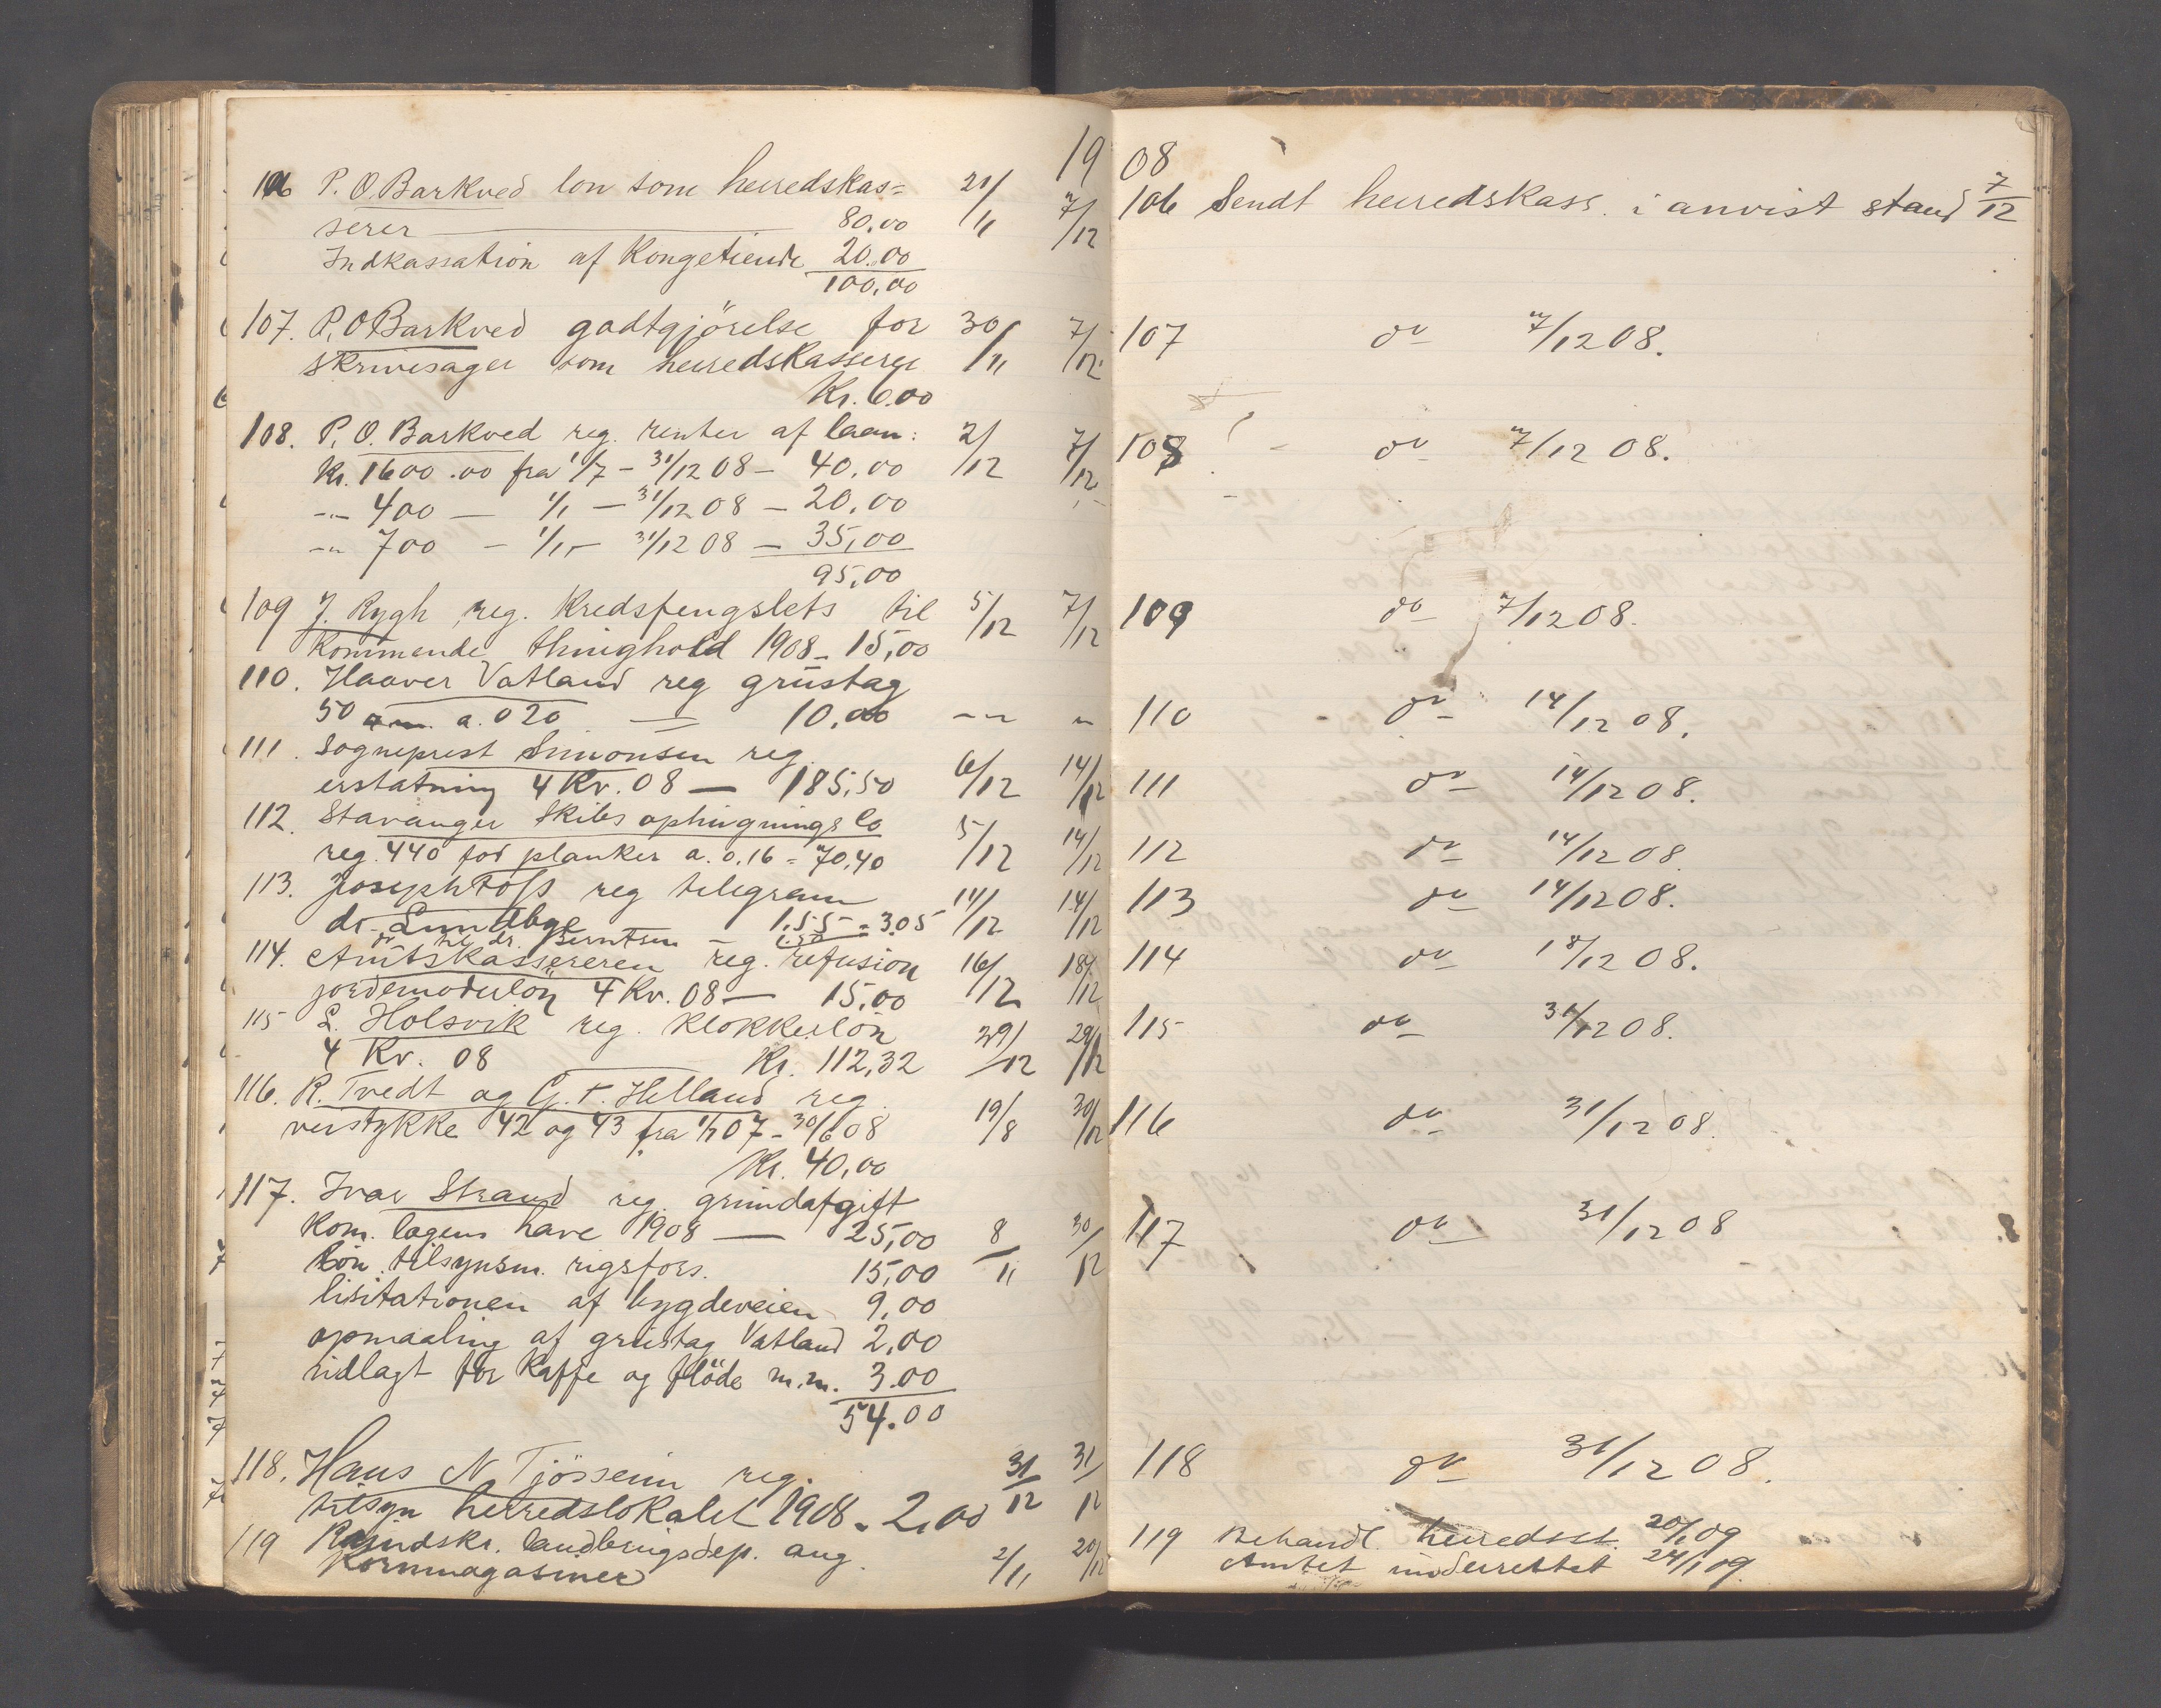 1908
106 P. O. Barkved lön som herredskas=
serer 80,00 21/11 7/12
Indkassation af Kongetiende 20.00
100,00
107. P. O Barkved godtgjörelse for 30/11 7/12
skrivesager som herredskasserer
Kr. 6.00
108. P. O. Barkved reg. renter af laan: 2/12 7/12
Kr. 1600.00 fra 1/7 - 31/12 08 - 40,00
-"- 400 - 1/1 - 31/12 08 - 20,00
-"- 700 - 1/1 - 31/12 08 - 35,00
95,00
109 J. Rygh reg. Kredsfengslets til 5/12 7/12
kommende thinghold 1908 - 15,00
110. Haaver Vatland reg grustag
50 a. 020 — 10,00 -"- "
111. Sogneprest Simonsen reg.
erstatning 4 Kv. 08 — 185,50 6/12 14/12
112. Stavanger Skibsophugnings Co
reg. 440 fod planker a. 0,16 = 70,40 5/12 14/12
113. Joseph Foss reg telegram 11/12 14/12
dr. Lundbye 1.55 = 3.05
do til dr. Berntsen - 1.50
114. Amtskassereren reg. refusion 16/12 18/12
jordemoderlön 4 Kv. 08 — 15,00
115 L. Holsvik reg. Klokkerlön 29/12 29/12
4 Kv. 08 Kr. 112,32
116. R. Tvedt og G. T. Helland reg.
veistykke 42 og 43 fra 1/7 07 - 30/6 08 19/8 30/12
Kr. 40,00
117. Ivar Strand reg. grundafgift
Kom. lagens have 1908 — 25,00 8/11 30/12
Lön tilsynsm. rigsfors. 15,00
lisitationen af bygdeveien 9,00
opmaaling af grustag Vatland 2,00
udlagt for Kaffe og flöde m.m. 3.00
54.00
118. Hans N. Tjössem reg. 31/12 31/12
tilsyn herredslokalet 1908 - 2,00
119 Rundskr. landbrugsdep. ang. 2/11 20/12
Kornmagasiner
106 Sendt herredskass. i anvist stand 7/12
107 do 7/12 08.
108 do 7/12 08.
109 do 7/12 08.
110 do 14/12 08.
111 do 14/12 08.
112 do 14/12 08
113 do 14/12 08.
114 do 18/12 08.
115 do 31/12 08.
116 do 31/12 08.
117 do 31/12 08
118 do 31/12 08.
119 Behandl. herredsst. 20/1 09
Amtet underrettet 24/1 09.